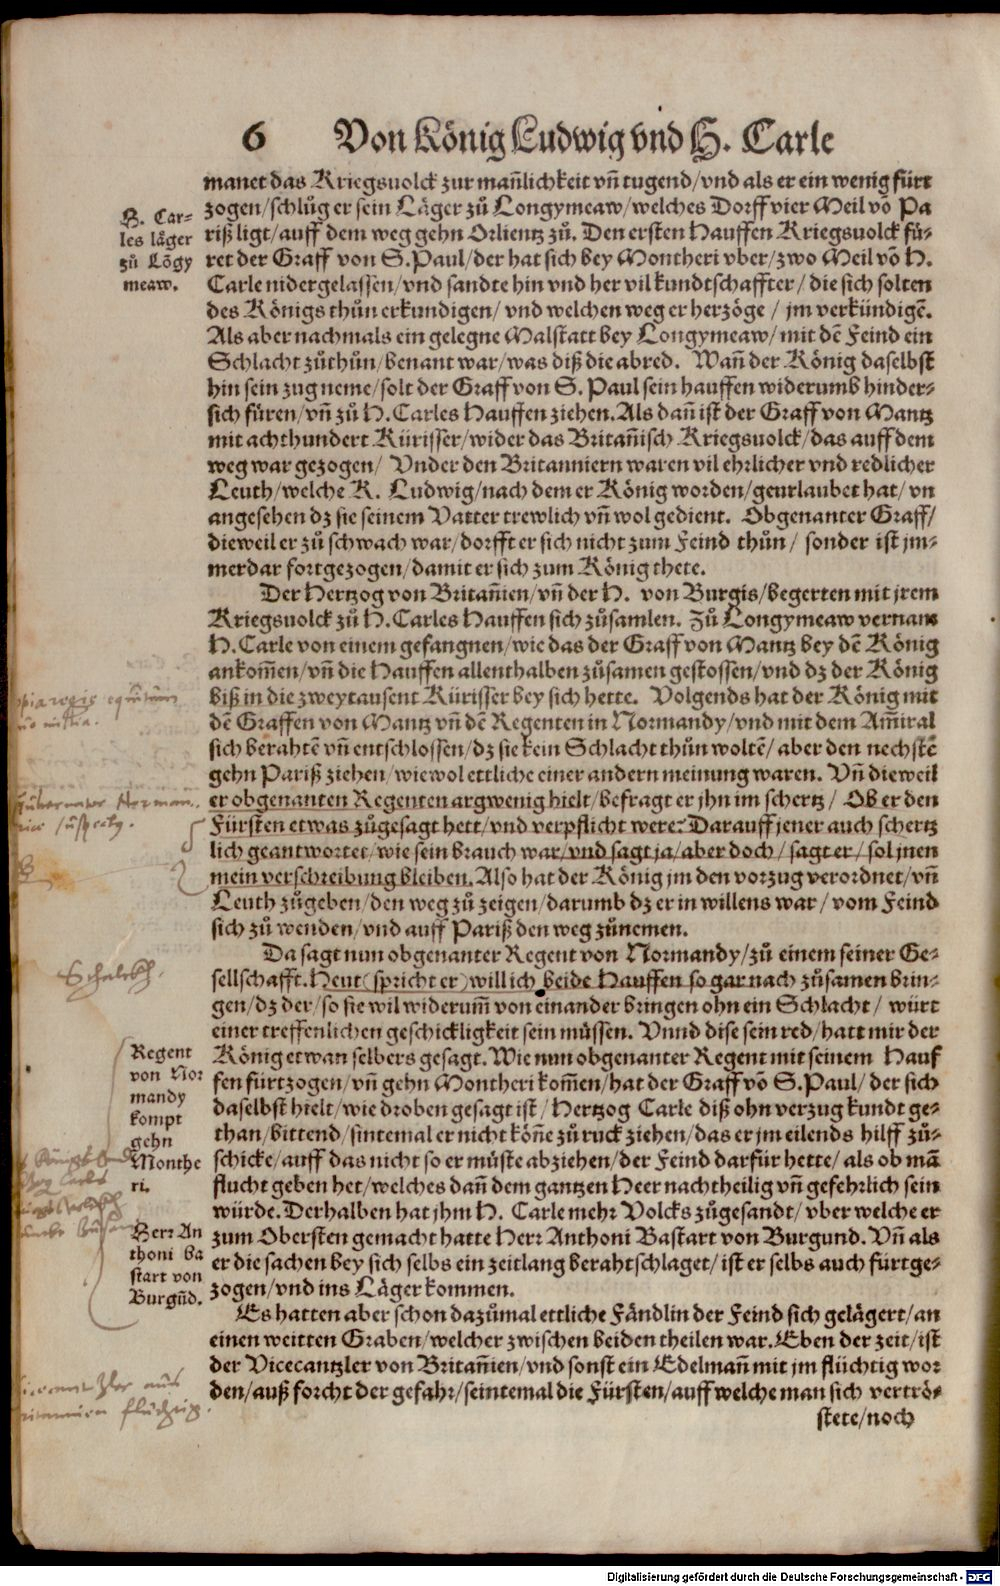 6 Von König Ludwig vnd H. Carle
manet das Kriegsuolck zur mañlichkeit vñ tugend/vnd als er ein wenig fürt
zogen/schlůg er sein Läger zů Longymeaw/welches Dorff vier Meil võ Pa
riß ligt/auff dem weg gehn Orlientz zů. Den ersten Hauffen Kriegsuolck fü-
ret der Graff von S. Paul/der hat sich bey Montheri vber/zwo Meil võ H.
Carle nidergelassen/vnd sandte hin vnd her vil kundtschaffter/die sich solten
des Königs thůn erkundigen/vnd welchen weg er herzöge/jm verkündigẽ.
Als aber nachmals ein gelegne Malstatt bey Longymeaw/mit dẽ Feind ein
Schlacht zůthůn/benant war/was diß die abred. Wañ der König daselbst
hin sein zug neme/solt der Graff von S. Paul sein hauffen widerumb hinder-
sich füren/vñ zů H. Carles Hauffen ziehen. Als dañ ist der Graff von Mantz
mit achthundert Kürisser/wider das Britañisch Kriegsuolck/das auff dem
weg war gezogen/ Vnder den Britanniern waren vil ehrlicher vnd redlicher
Leuth/welche K. Ludwig/nach dem er König worden/geurlaubet hat/vn
angesehen dz sie seinem Vatter trewlich vñ wol gedient. Obgenanter Graff/
dieweil er zů schwach war/dorfft er sich nicht zum Feind thůn/ sonder ist jm-
merdar fortgezogen/damit er sich zum König thete.
Der Hertzog von Britañien/vñ der H. von Burgis/begerten mit jrem
Kriegsuolck zů H. Carles Hauffen sich zůsamlen. Zů Longymeaw vernam
H. Carle von einem gefangnen/wie das der Graff von Mantz bey dẽ König
ankom̃en/vñ die Hauffen allenthalben zůsamen gestossen/vnd dz der König
biß in die zweytausent Kürisser bey sich hette. Volgends hat der König mit
dẽ Graffen von Mantz vñ dẽ Regenten in Normandy/vnd mit dem Am̃iral
sich berahtẽ vñ entschlossen/dz sie kein Schlacht thůn woltẽ/aber den nechstẽ
gehn Pariß ziehen/wiewol ettliche einer andern meinung waren. Vñ dieweil
er obgenanten Regenten argwenig hielt/befragt er jhn im schertz/ Ob er den
Fürsten etwas zůgesagt hett/vnd verpflicht were? Darauff jener auch schertz
lich geantwortet/wie sein brauch war/vnd sagt ja/aber doch/sagt er/sol jnen
mein verschreibung bleiben. Also hat der König jm den vorzug verordnet/vñ
Leuth zůgeben/den weg zů zeigen/darumb dz er in willens war/vom Feind
sich zů wenden/vnd auff Pariß den weg zůnemen.
Da sagt nun obgenanter Regent von Normandy/zů einem seiner Ge-
sellschafft. Heut (spricht er) will ich beide Hauffen so gar nach zůsamen brin-
gen/dz der/so sie wil widerum̃ von einander bringen ohn ein Schlacht/ würt
einer treffenlichen geschickligkeit sein müssen. Vnnd dise sein red/hatt mir der
König etwan selbers gesagt. Wie nun obgenanter Regent mit seinem Hauf
fen fürtzogen/vñ gehn Montheri kom̃en/hat der Graff võ S. Paul/der sich
daselbst hielt/wie droben gesagt ist/Hertzog Carle diß ohn verzug kundt ge-
than/bittend/sintemal er nicht köñe zů ruck ziehen/das er jm eilends hilff zů-
schicke/auff das nicht so er müste abziehen/der Feind darfür hette/als ob mã
flucht geben het/welches dañ dem gantzen Heer nachtheilig vñ gefehrlich sein
würde. Derhalben hat jhm H. Carle mehr Volcks zůgesandt/vber welche er
zum Obersten gemacht hatte Herr Anthoni Bastart von Burgund. Vñ als
er die sachen bey sich selbs ein zeitlang berahtschlaget/ist er selbs auch fürtge-
zogen/vnd ins Läger kommen.
Es hatten aber schon dazůmal ettliche Fändlin der Feind sich gelägert/an
einen weitten Graben/welcher zwischen beiden theilen war. Eben der zeit/ist
der Vicecantzler von Britañien/vnd sonst ein Edelmañ mit jm flüchtig wor
den/auß forcht der gefahr/seintemal die Fürsten/auff welche man sich verträ-
stete/noch
H. Car-
les läger
zů Lõgy
meaw.
Schalckh.
Regent
von Nor
mandy
kompt
gehn
Monthe
ri.
Herr An
thoni ba
start von
Burgũd.
Digitalisierung gefördert durch die Deutsche Forschungsgemeinschaft - DFG